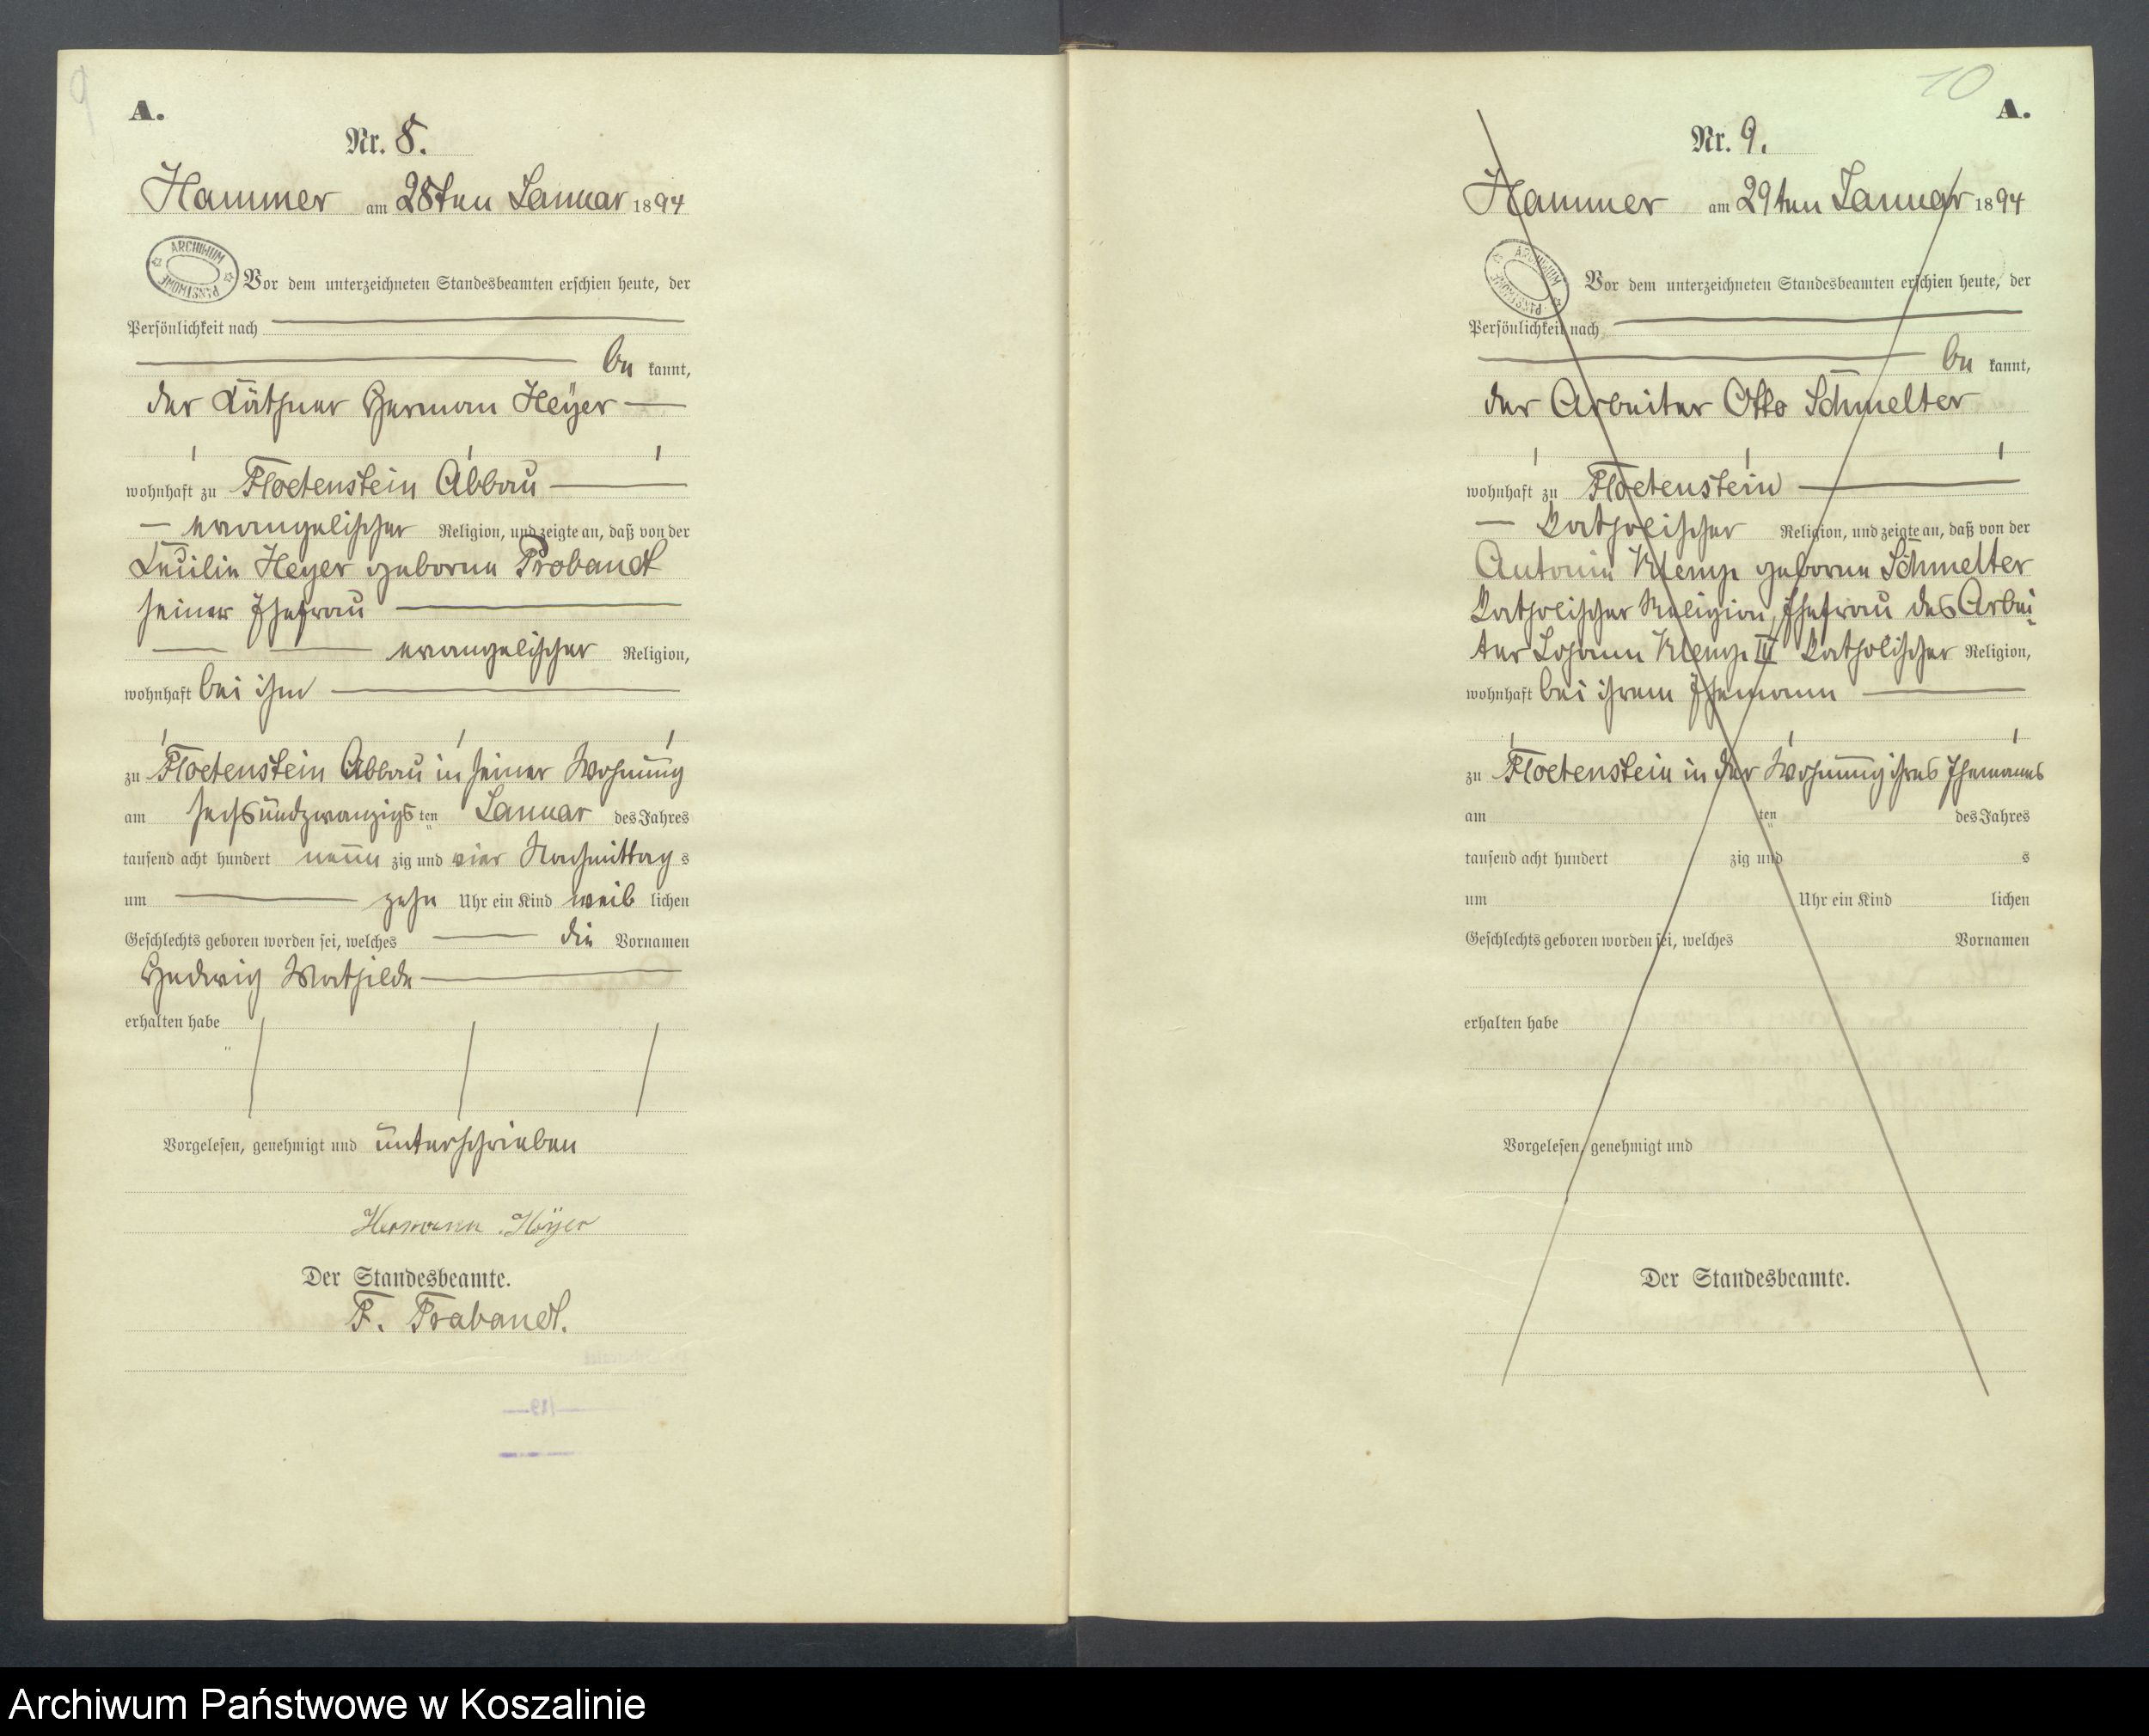 9
A.
Nr. 8.
Hammer am 28ten Januar 1894
ARCHIWUM PAŃSTWOWE
Vor dem unterzeichneten Standesbeamten erschien heute, der
Persönlichkeit nach
be kannt,
der Käthner Herman Heyer
wohnhaft zu Floetenstein Abbau
evangelischer Religion, und zeigte an, daß von der
Cecilie Heyer geborne Probandt
seiner Ehefrau
evangelischer Religion,
wohnhaft bei ihm
zu Floetenstein Abbau in seiner Wohnung
am sechsundzwanzigs ten Januar des Jahres
tausend acht hundert neun zig und vier Nachmittag s
um zehn Uhr ein Kind weib lichen
Geschlechts geboren worden sei, welches die Vornamen
Hedwig Mathilde
erhalten habe
Vorgelesen, genehmigt und unterschrieben
Hermann Heÿer
Der Standesbeamte.
F. Trabandt.
10
A.
Nr. 9.
Hammer am 29ten Januar 1894
ARCHIWUM PAŃSTWOWE
Vor dem unterzeichneten Standesbeamten erschien heute, der
Persönlichkeit nach
be kannt,
der Arbeiter Otto Schmelter
wohnhaft zu Floetenstein
katholischer Religion, und zeigte an, daß von der
Antonie Klemp geborne Schmelter
katholischer Religion, Ehefrau des Arbei-
ter Johann Klemp IV katholischer Religion,
wohnhaft bei ihrem Ehemann
zu Floetenstein in der Wohnung ihres Ehemannes
am ten des Jahres
tausend acht hundert zig und s
um Uhr ein Kind lichen
Geschlechts geboren worden sei, welches Vornamen
erhalten habe
Vorgelesen, genehmigt und
Der Standesbeamte.
Archiwum Państwowe w Koszalinie